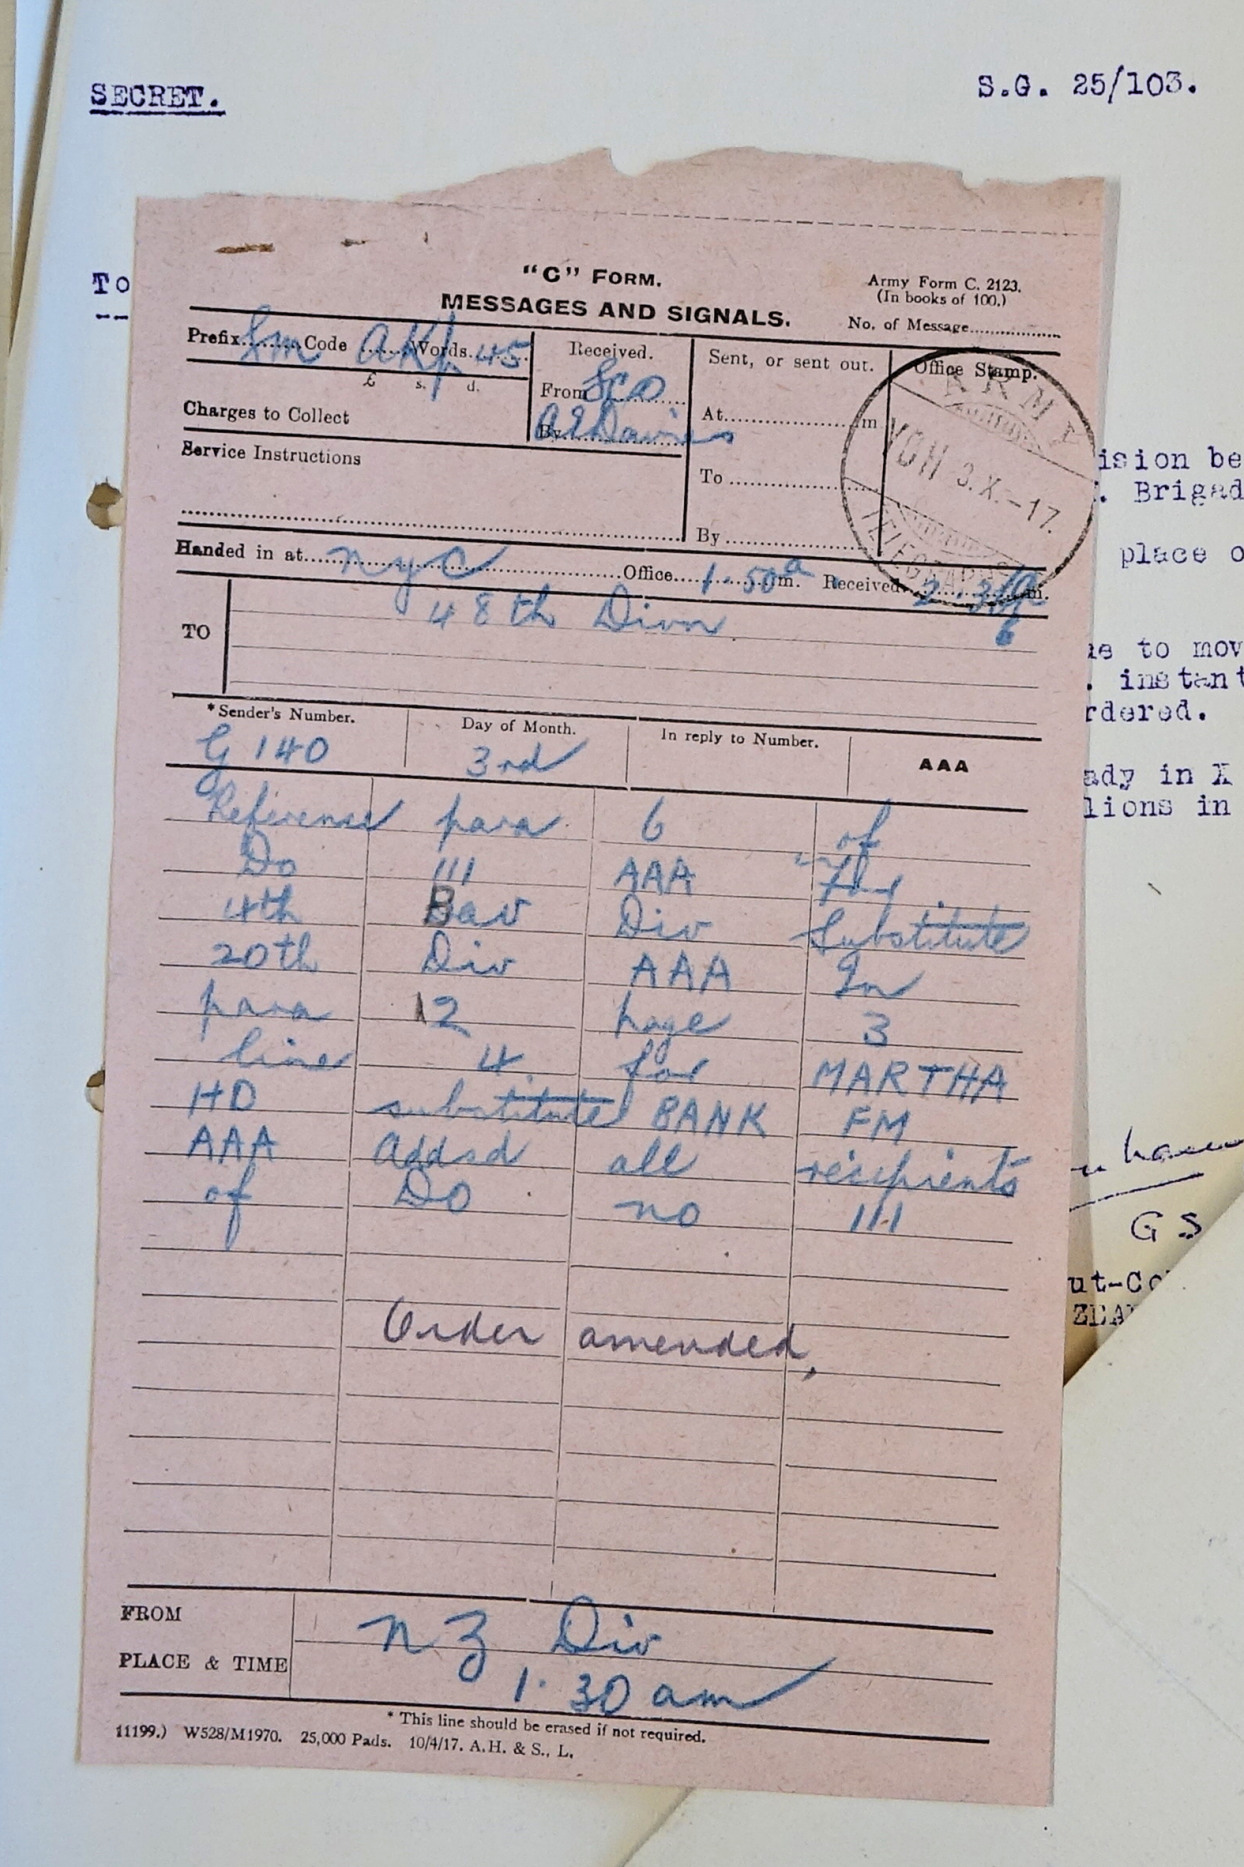 SECRET.
S.G. 25/103.
To
"C" FORM.
MESSAGES AND SIGNALS.
Army Form C. 2123.
(In books of 100.)
No. of Message
Prefix Sm Code AKp Words 45
£ s. d.
Charges to Collect
Service Instructions
Received.
From SCO
By A E Davies
Sent, or sent out.
At m
To
By
Office Stamp.
ARMY
YOH 3.X.-17.
TELEGRAPHS
Handed in at nyc Office 1.50 a m. Received 2.36 a m.
6
TO 48th Divn
*Sender's Number. Day of Month. In reply to Number. AAA
G 140 3rd
Reference para 6 of
Do 111 AAA For
4th Bav Div Substitute
20th Div AAA In
para 12 page 3
line 4 for MARTHA
HD substitute BANK FM
AAA addsd all recipients
of DO no 111
Order amended,
FROM NZ Div
PLACE & TIME 1.30 am
* This line should be erased if not required.
11199.) W528/M1970. 25,000 Pads. 10/4/17. A.H. & S., L.
ision be
. Brigad
place o
e to mov
. instant
rdered.
ady in X
lions in
GS
ut-Co
ZEA